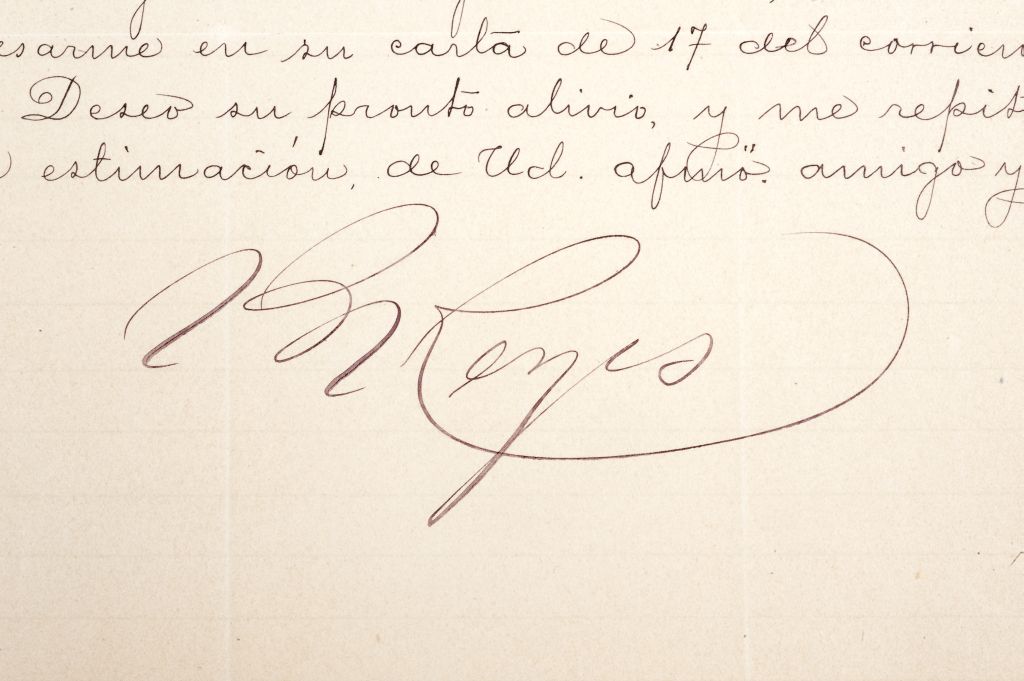 esarme en su carta de 17 del corrien
Deseo su pronto alivio, y me repit
estimación, de Ud. afmõ. amigo y
Reyes